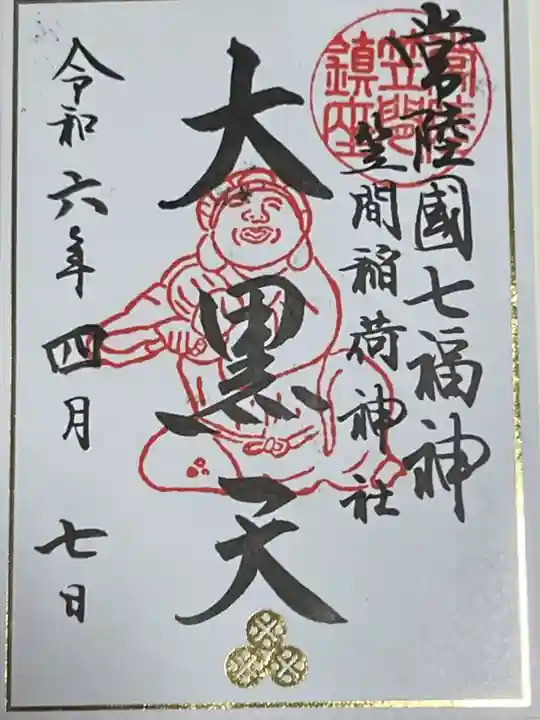 常陸國七福神
笠間稲荷神社
大黒天
令和六年四月七日